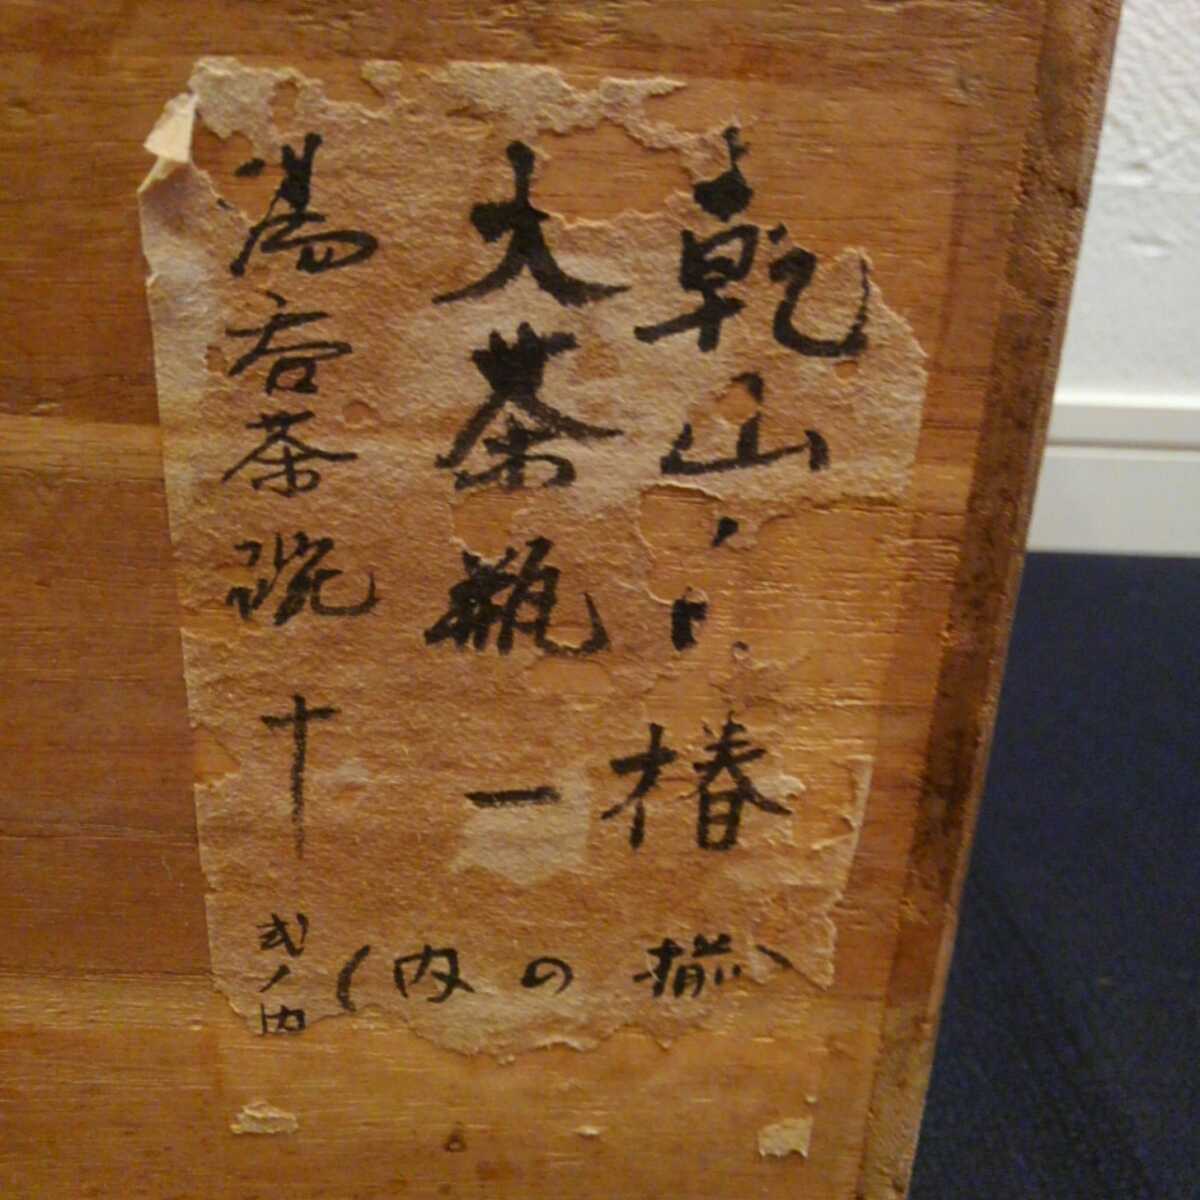 乾山
椿
大茶瓶一
湯呑茶碗十
揃の内
弐ノ内